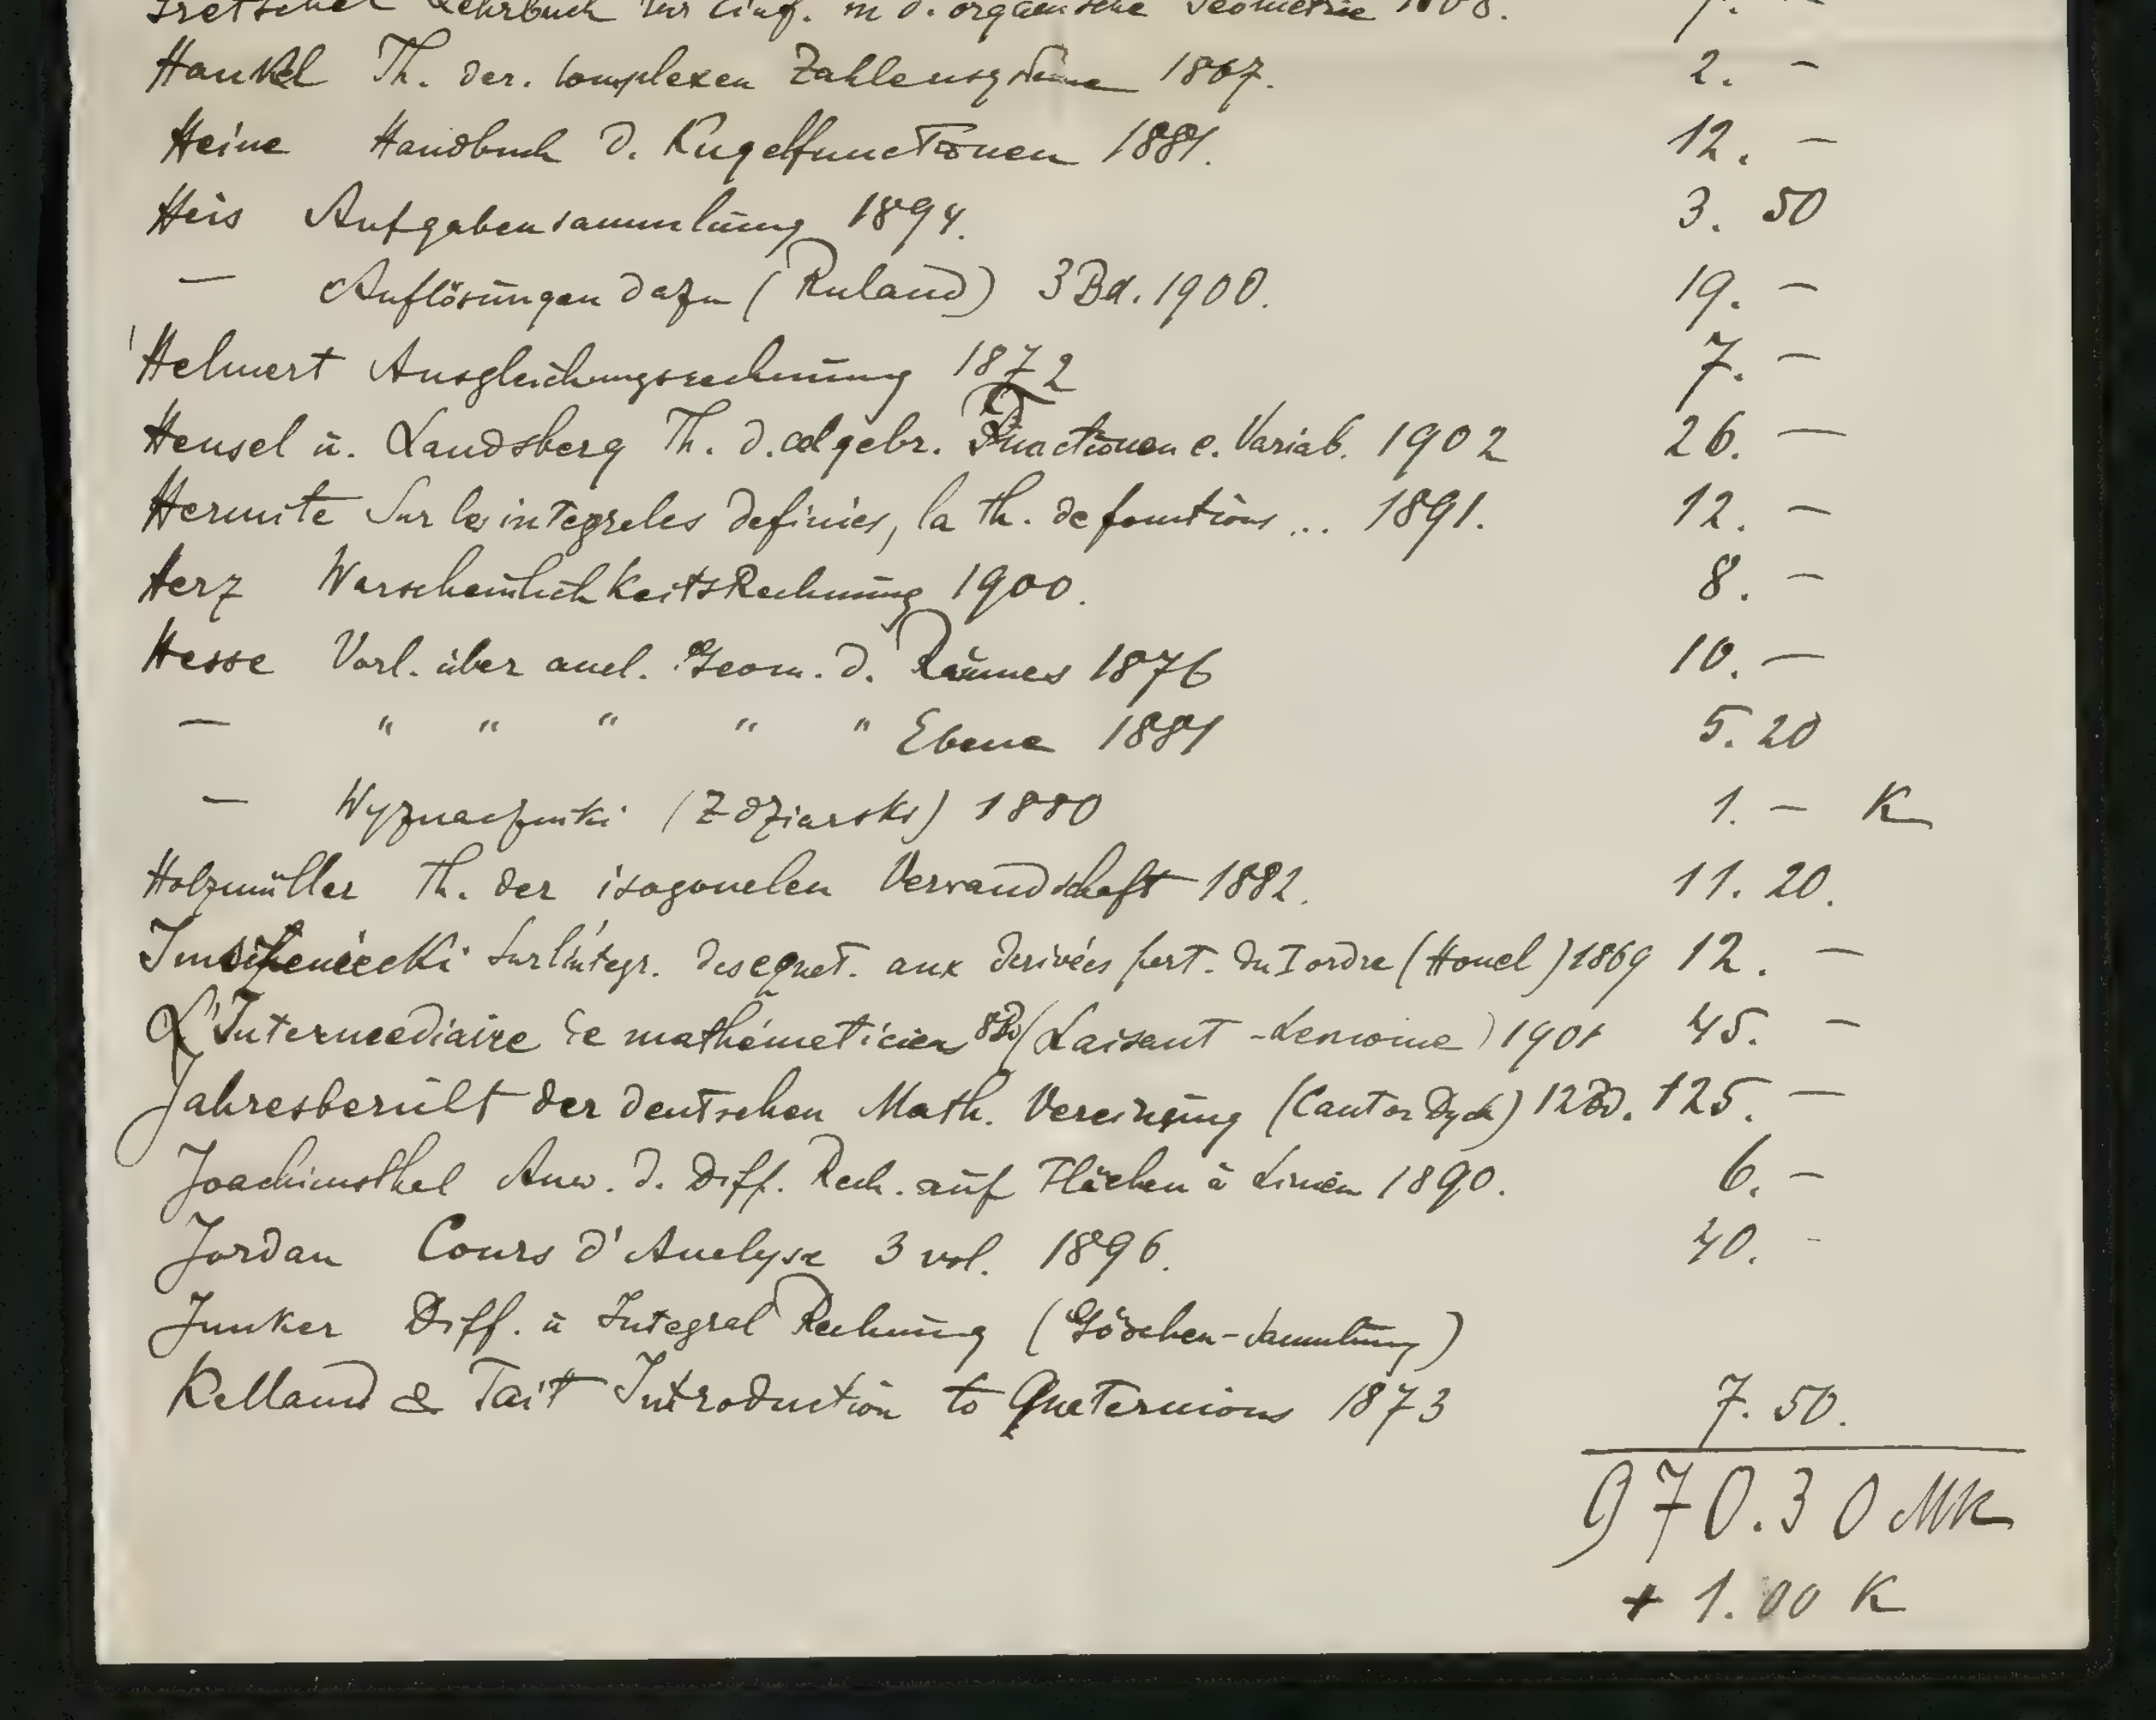 Lehrbuch zur Einf. in d. organische Geometrie
Hankel Th. der. complexen Zahlensysteme 1867. 2. –
Heine Handbuch d. Kugelfunctionen 1881. 12. –
Heis Aufgabensammlung 1894. 3. 50
– Auflösungen dazu (Ruland) 3 Bd. 1900. 19. –
Helmert Ausgleichungsrechnung 1872 7. –
Hensel u. Landsberg Th. d. algebr. Functionen e. Variab. 1902 26. –
Hermite Sur les integreles definies, la th. de fonctions ... 1891. 12. –
Herz WarscheinlichkeitsRechnung 1900. 8. –
Hesse Vorl. über anal. Geom. d. Raumes 1876 10. –
– " " " " " Ebene 1881 5. 20
– Wyznaczniki (Zdziarski) 1880 1. – K
Holzmüller Th. der isogonalen Vervandschaft 1882. 11. 20.
Imschenecki Sur l'intégr. des equat. aux derivées part. du I ordre (Houel) 1869 12. –
L'Intermediaire de mathématiciens 8 Bd (Laisant - Lemoine) 1901 45. –
Jahresbericht der deutschen Math. Vereinigung (Cantor Dyck) 12 Bd. 125. –
Joachimsthal Anw. d. Diff. Rech. auf Flächen u Linien 1890. 6. –
Jordan Cours d'Analyse 3 vol. 1896. 40. -
Junker Diff. u Integral Rechnung (Göschen-Sammlung)
Kelland & Tait Introduction to Quaternions 1873 7. 50.
970.30 MK
+ 1.00 K